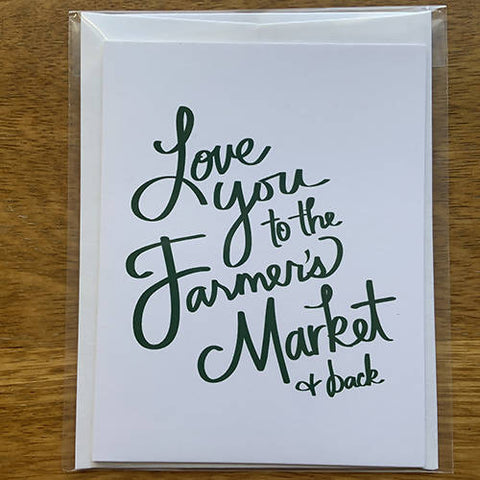 Love
you
to the
Farmer's
Market
& back